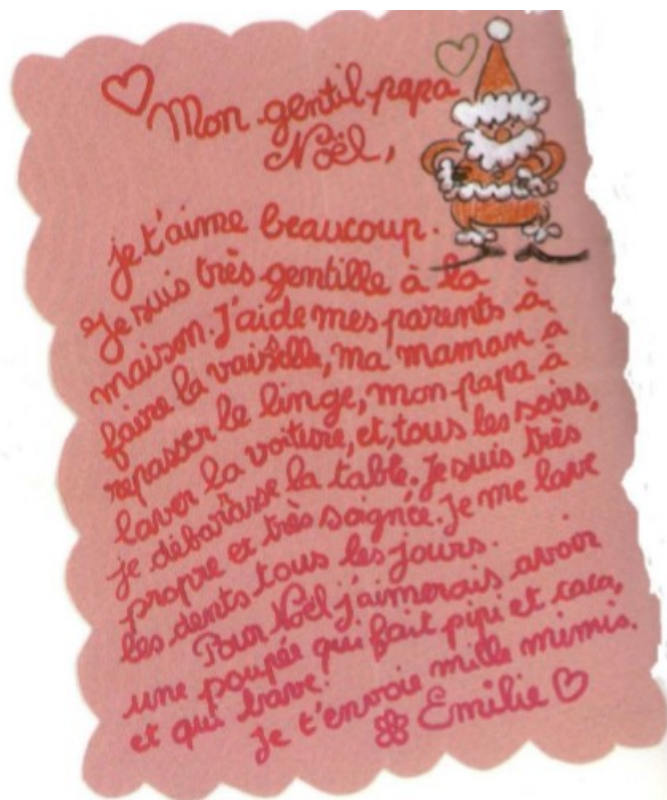 Mon gentil papa
Noël,
je t'aime beaucoup.
Je suis très gentille à la
maison. J'aide mes parents à
faire la vaisselle, ma maman à
repasser le linge, mon papa à
laver la voiture, et, tous les soirs,
je débarasse la table. Je suis très
propre et très soignée. Je me lave
les dents tous les jours.
Pour Noël j'aimerais avoir
une poupée qui fait pipi et caca,
et qui bave.
Je t'envoie mille mimis.
Emilie